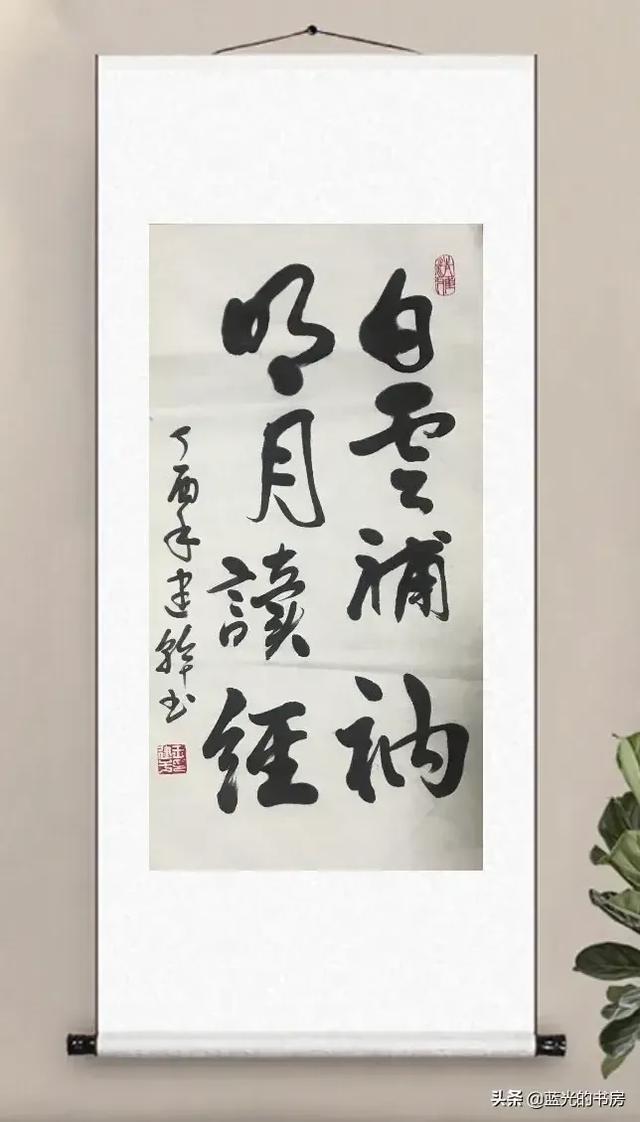 白雲補衲
明月讀經
丁酉年建幹书
头条 @蓝光的书房